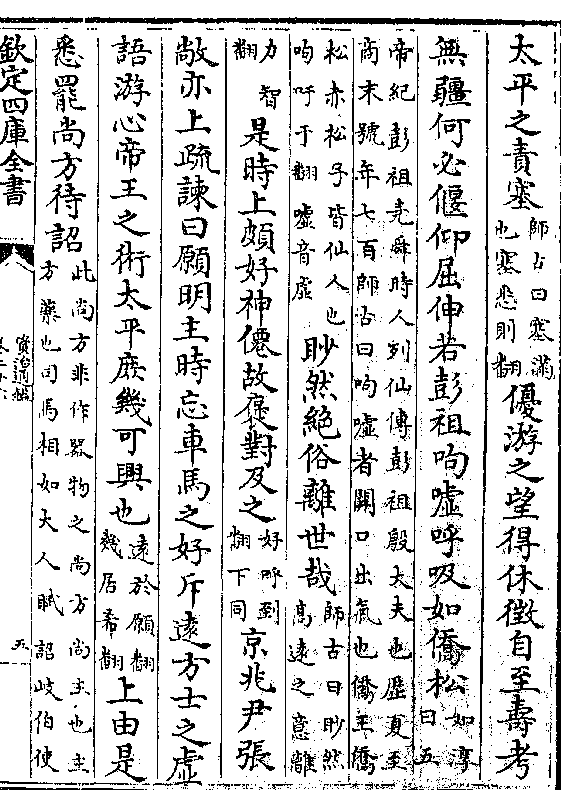 太平之責塞師古曰塞滿也塞悉則翻優游之望得休徵自至壽考
無疆何必偃仰屈伸若彭祖呴噓呼吸如僑松如淳曰五
帝紀彭祖堯舜時人列仙傳彭祖殷大夫也歷夏至商末號年七百師古曰呴噓者開口出氣也僑王僑
松赤松子皆仙人也呴吁于翻噓音虛眇然絶俗離世哉師古曰眇然髙逺之意離
力智翻是時上頗好神僊故褒對及之好呼到翻下同京兆尹張
敞亦上疏諫曰願明主時忘車馬之好斥逺方士之虛
語游心帝王之術太平庶幾可興也逺於願翻幾居希翻上由是
悉罷尚方待詔此尚方非作器物之尚方尚主也主方藥也司馬相如大人賦詔岐伯使
欽定四庫全書
資治通鑑
五